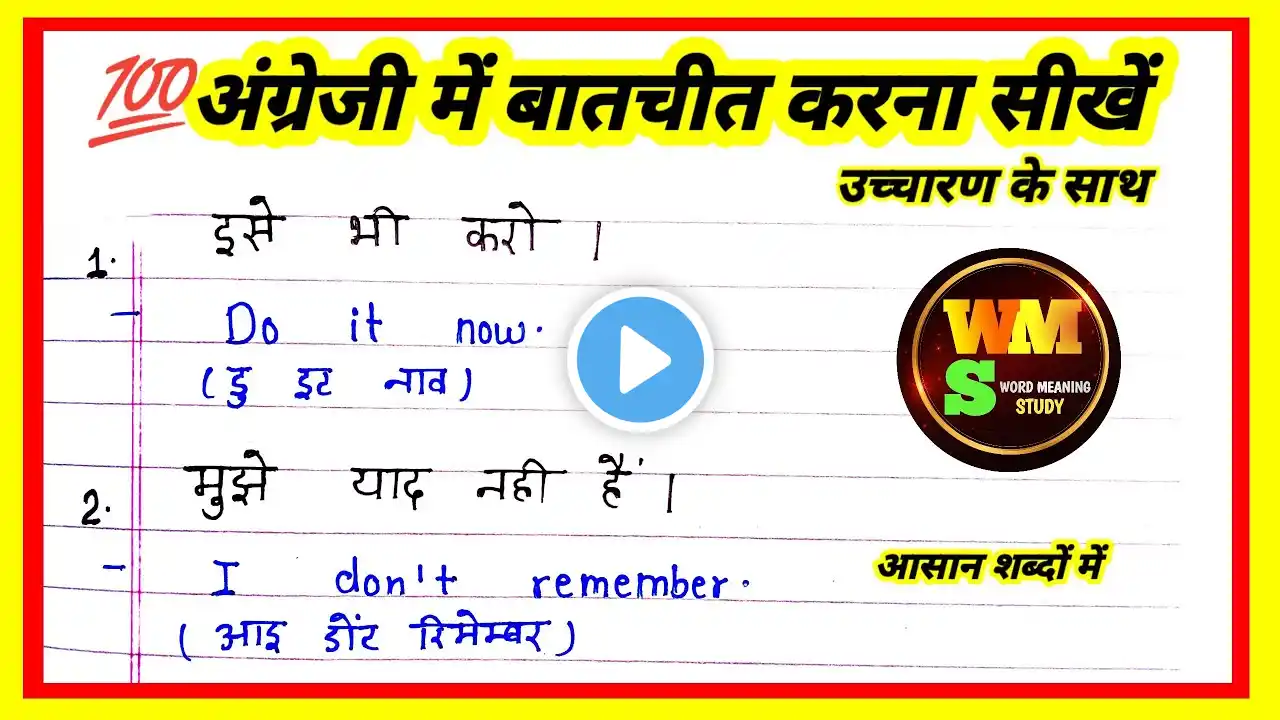 💯 अंग्रेजी में बातचीत करना सीखें
उच्चारण के साथ
1. इसे भी करो ।
- Do it now.
(डु इट नाव)
WMS WORD MEANING STUDY
2. मुझे याद नही हैं ।
- I don't remember.
(आइ डोंट रिमेम्बर)
आसान शब्दों में